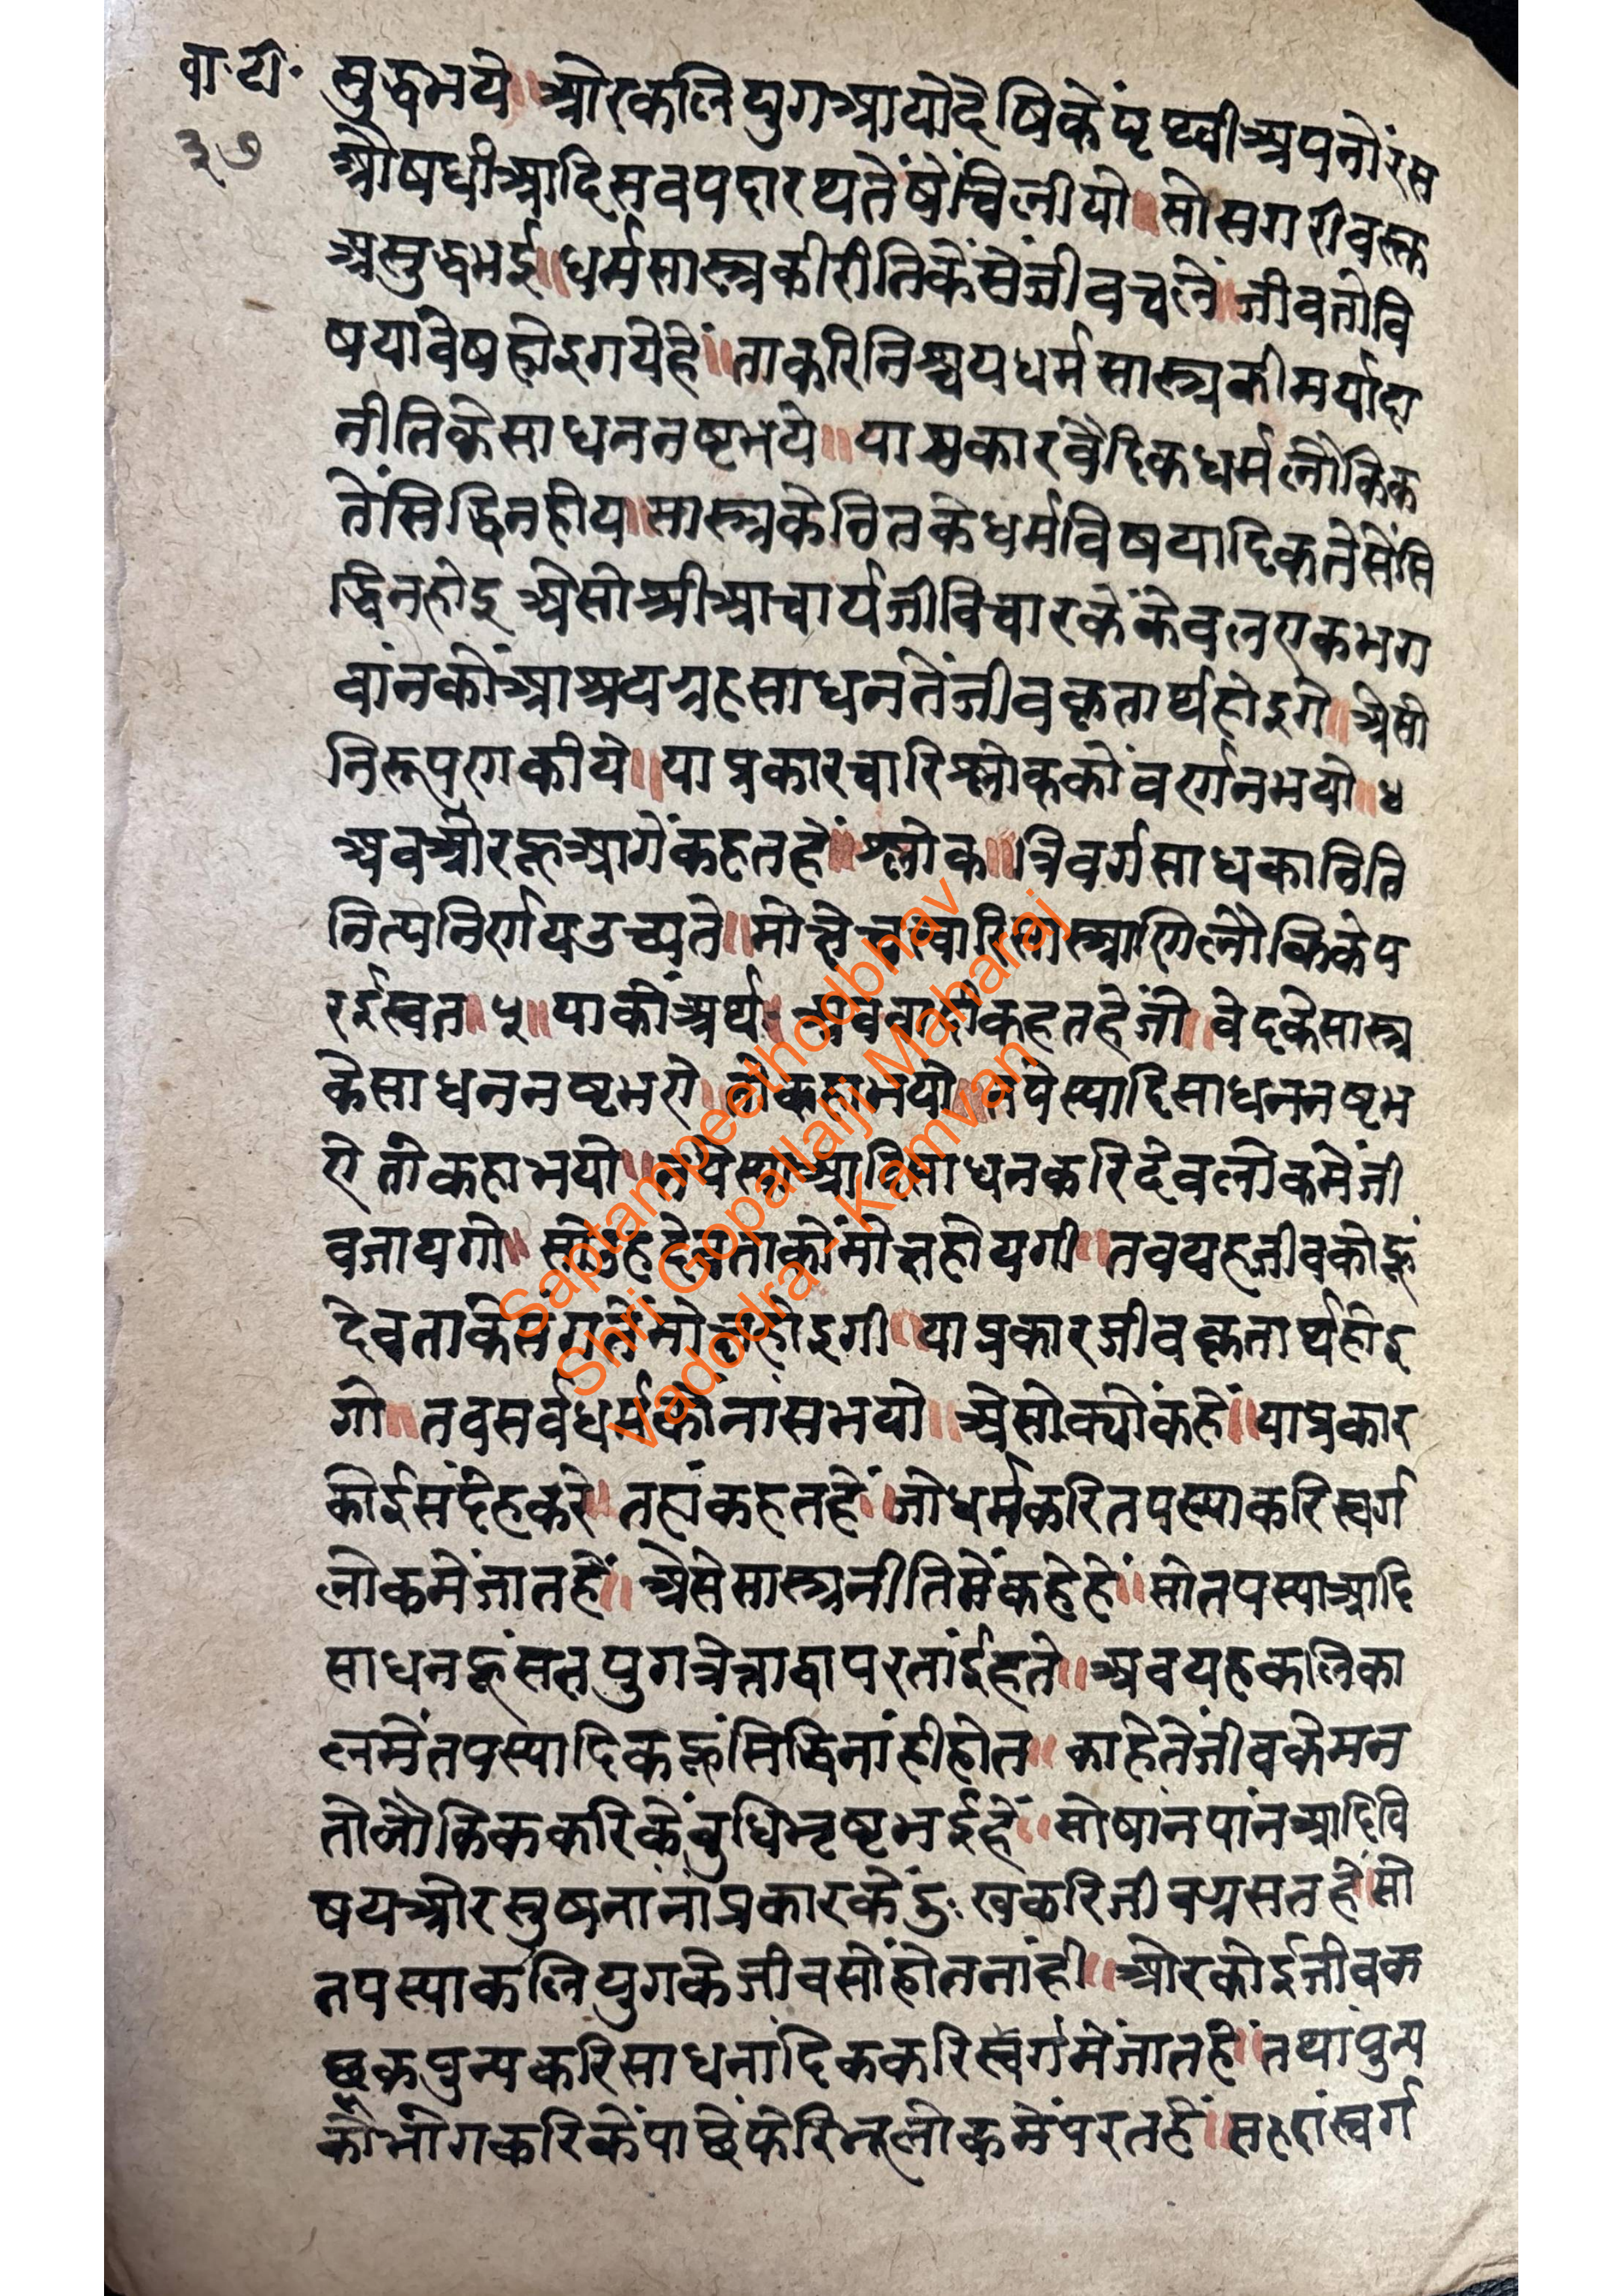 बा.टी.
३७
सुद्धभये॥ औरकलियुगआयोदेषिकेंपृथ्वीअपनोंरस
औषधीआदिसवपदारथतेंषेंचिलीयो॥ सोसगरीवस्त
असुद्धभई॥ धर्मसास्त्रकीरीतिकेंसेंजीवचलें॥ जीवतोवि
षयांवेषहोइगयेहें॥ ताकरिनिश्चयधर्मसास्त्रकीमर्यादा
नीतिकेसाधननष्टभये॥ याप्रकारवैदिकधर्मलौकिक
तेंसिद्धिनहीय॥ सास्त्रकेवितकेधर्मविषयादिकतेसेंसि
द्धिनहोइ अैसीश्रीआचार्यजीविचारकेंकेवलएकभग
वांनकोंआश्रययहसाधनतेंजीवकृतार्थहोइगे॥ अैसी
निरूपणकीये॥ याप्रकारचारिश्लोककोंवर्णनभयो॥ ४
अवऔरहूआगेंकहतहें॥ श्लोक॥ त्रिवर्गसाधकानिति
नित्यनिर्णयउच्यते॥ मोक्षेचत्वारिसास्त्राणिलौकिकेप
रईस्वत॥ ५॥ याकोंअर्थ॥ अववादीकहतहेंजो॥ वेदकेसास्त्र
केसाधननष्टभए॥ तोकहाभयो॥ तपेस्यादिसाधननष्टभ
ए तोकहाभयो॥ तपेस्याआदिसाधनकरिदेवलोकमेंजी
वजायगो॥ सोउहदेवताकोंमोक्षहोयगी॥ तवयहजीवकोहूं
देवताकेसंगतेंमोक्षहोइगी॥ याप्रकारजीवकृतार्थहोइ
गो॥ तवसर्वधर्मकोनांसभयो॥ अैसोक्योंकहें॥ याप्रकार
कोईसंदेहकरे॥ तहांकहतहें॥ जोधर्मकरितपस्याकरिस्वर्ग
लोकमेंजातहें॥ अैसेसास्त्रनीतिमेंकहेहें॥ सोतपस्याआदि
साधनहूंसतयुगत्रेताद्वापरतांईहते॥ अवयहकलिका
लमेंतपस्यादिकहूंसिद्धिनांहीहोत॥ काहेतेंजीवकेमन
तोलौकिककरिकेंवुधिभ्रष्टभईहें॥ सोषांनपांनआदिवि
षयऔरसुषनांनांप्रकारकेंदुःखकरिजीवग्रसतहें॥ सो
तपस्याकलियुगकेजीवसोंहोतनांही॥ औरकोईजीवक
छूकपुन्यकरिसाधनांदिककरिस्वर्गमेंजातहें॥ तथापुन्य
कोंभोगकरिकेंपाछेंफेरिभूलोकमेंपरतहें॥ सहास्वर्ग
Saptampeethodbhav
Shri Gopallalji Maharaj
Vadodra - Kamvan